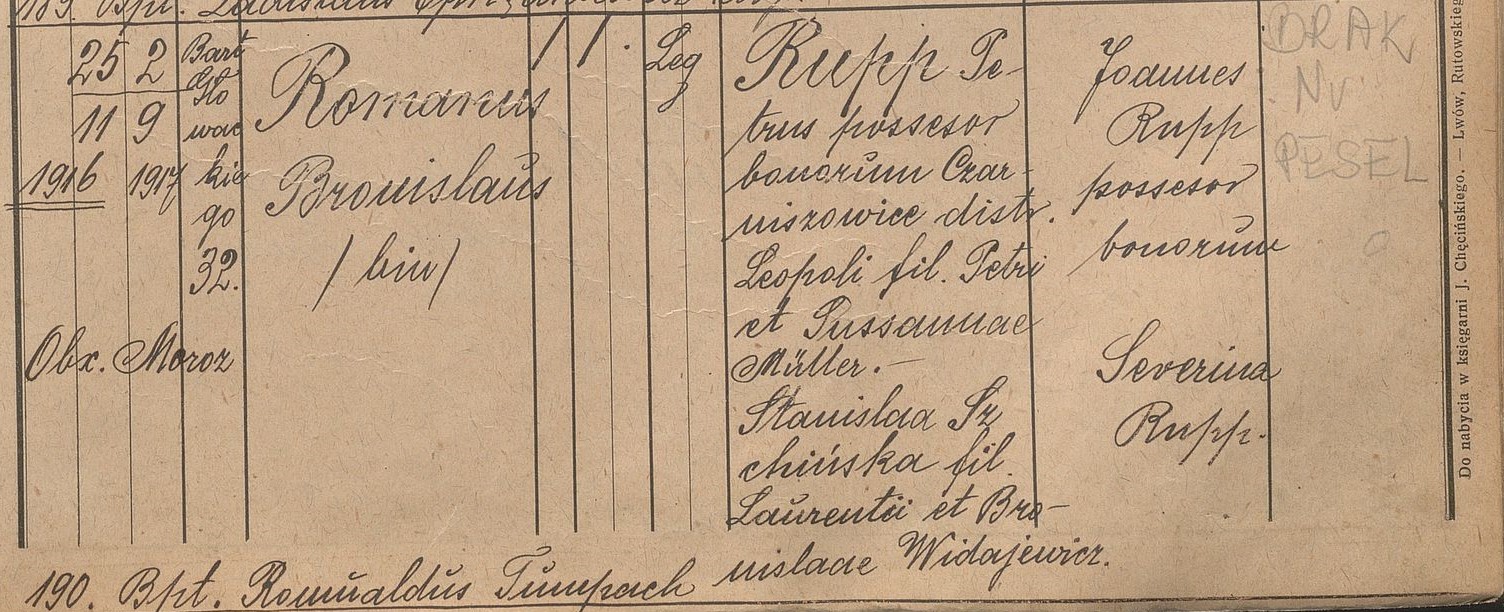 189. Bpt. Ladislaus
25 2 Bart
Sło
11 9 wac
1916 1917 kie
go
32.
Obx. Moroz
Romanus
Bronislaus
/ bin /
1 1 .
Leg
Rupp Pe-
trus possesor
bonorum Czar-
niszowice distr.
Leopoli fil. Petri
et Sussannae
Müller.-
Stanislaa Sz
chińska fil.
Laurentii et Bro-
nislaae Widajewicz.
Joannes
Rupp
possesor
bonorum
Severina
Rupp.
BRAK
NV
PESEL
190. Bpt. Romualdus Tumpach
Do nabycia w księgarni J. Chęcińskiego. — Lwów, Rutowskieg